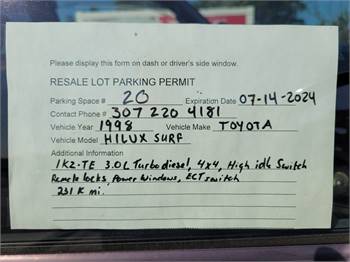 Please display this form on dash or driver's side window.
RESALE LOT PARKING PERMIT
Parking Space # 20 Expiration Date 07-14-2024
Contact Phone # 307 220 4181
Vehicle Year 1998 Vehicle Make TOYOTA
Vehicle Model HILUX SURF
Additional Information
1KZ-TE 3.0L Turbodiesel, 4x4, High idle Switch
Remote locks, Power Windows, ECT switch
231 K mi.